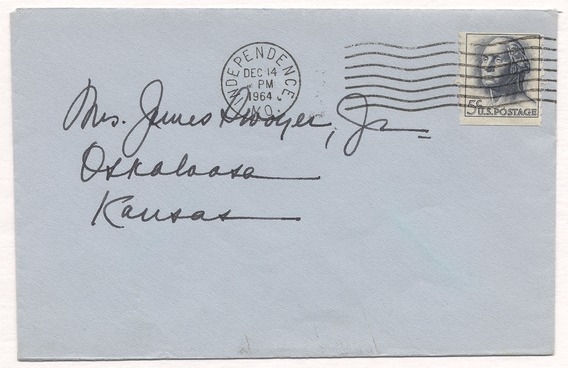 INDEPENDENCE, MO.
DEC 14
PM
1964
5¢ U.S. POSTAGE
Mrs. James Dwyer, Jr.
Oskaloosa
Kansas